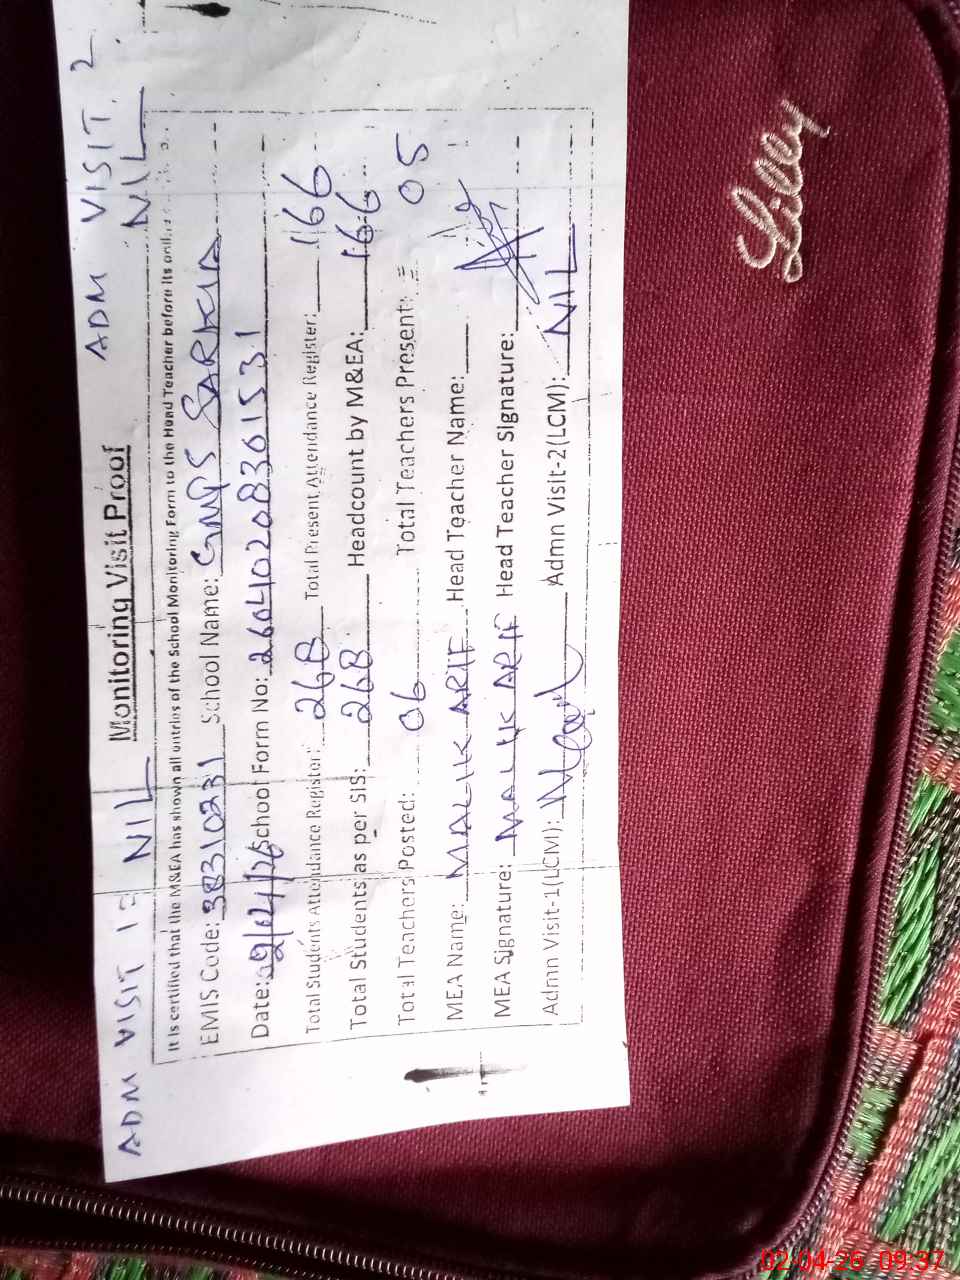 ADM VISIT 1: NIL ADM VISIT 2 NIL
Monitoring Visit Proof
It is certified that the M&EA has shown all entries of the School Monitoring Form to the Head Teacher before its onli
EMIS Code: 38310231 School Name: GMPS SARKIA
Date: 02/04/26 School Form No: 26040208301531
Total Students Attendance Register: 268 Total Present Attendance Register: 166
Total Students as per SIS: 268 Headcount by M&EA: 166
Total Teachers Posted: 06 Total Teachers Present: 05
MEA Name: MALIK ARIF Head Teacher Name:
MEA Signature: MALIK ARIF Head Teacher Signature:
Admn Visit-1(LCMI): Admn Visit-2(LCMI): NIL
Lilly
02-04-26 09:37